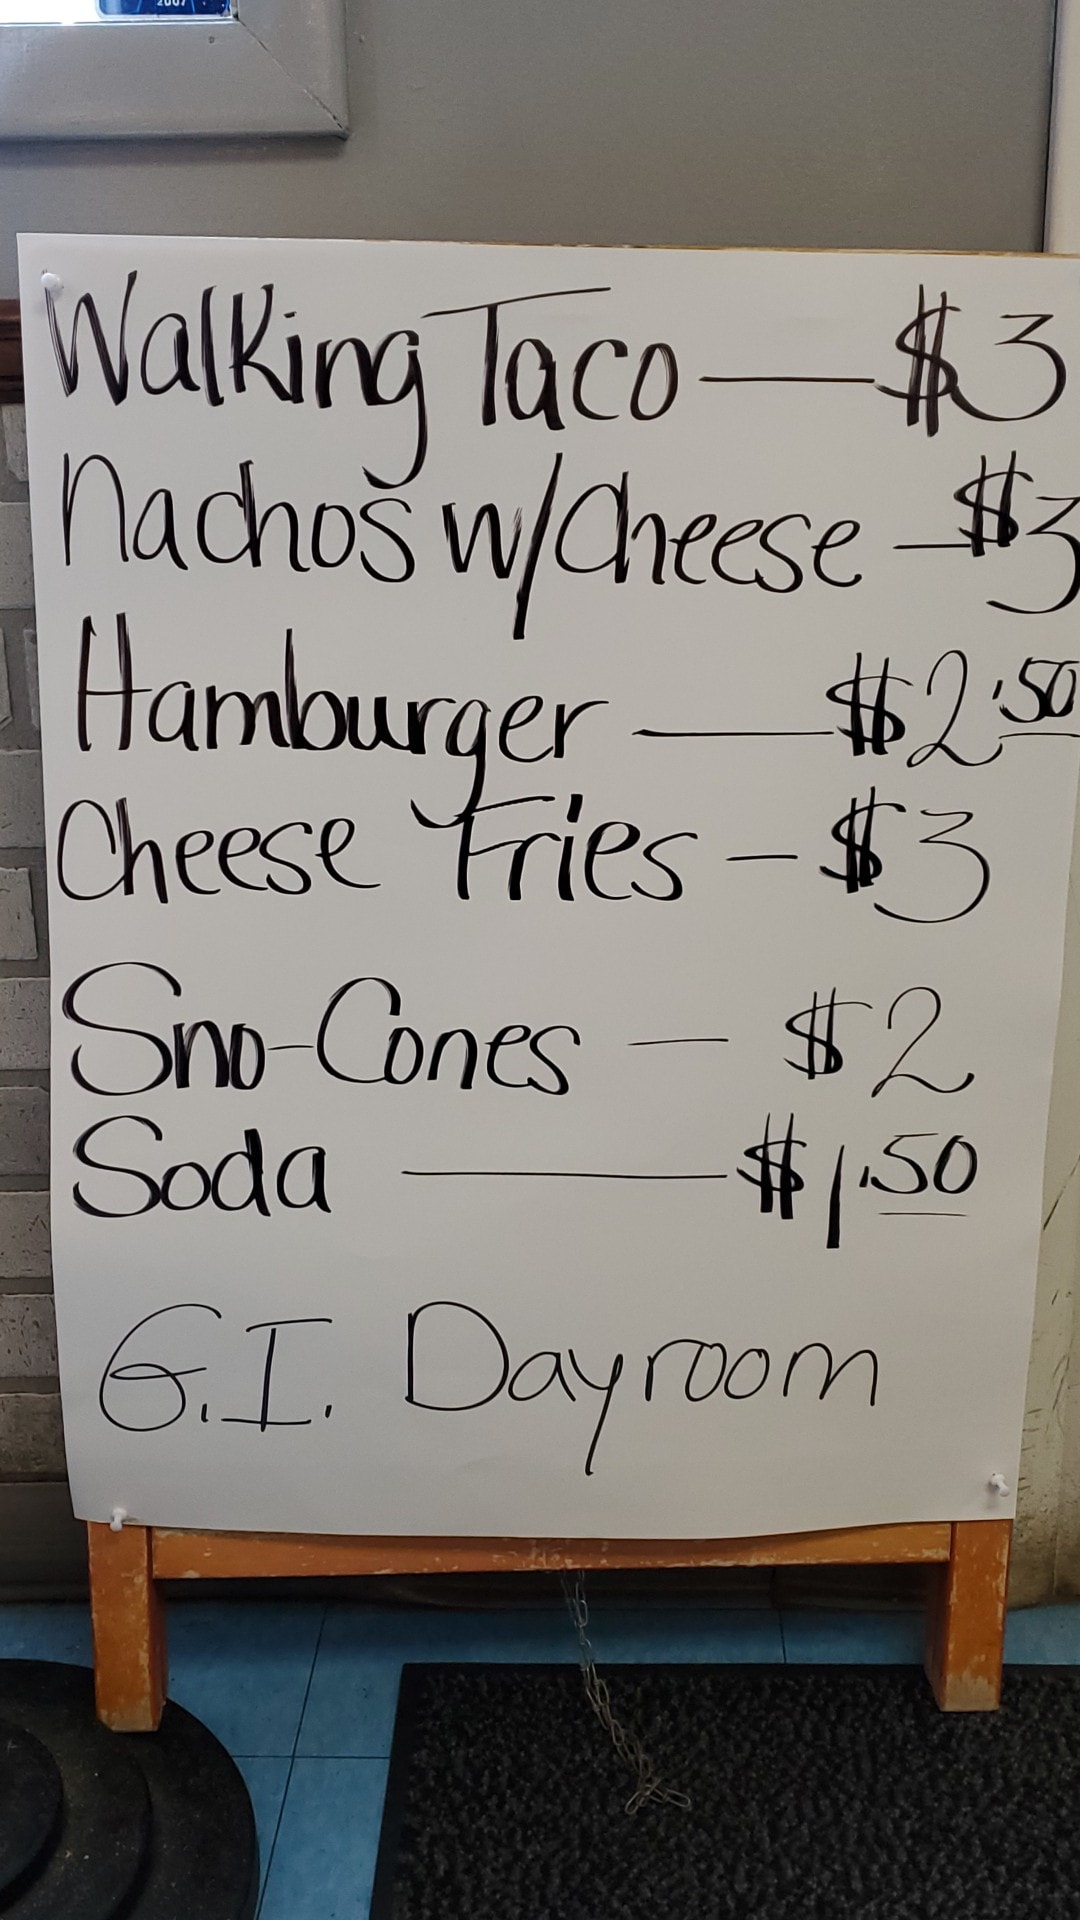 2007
Walking Taco — $3
Nachos w/Cheese — $3
Hamburger — $2.50
Cheese Fries — $3
Sno-Cones — $2
Soda — $1.50
G.I. Dayroom